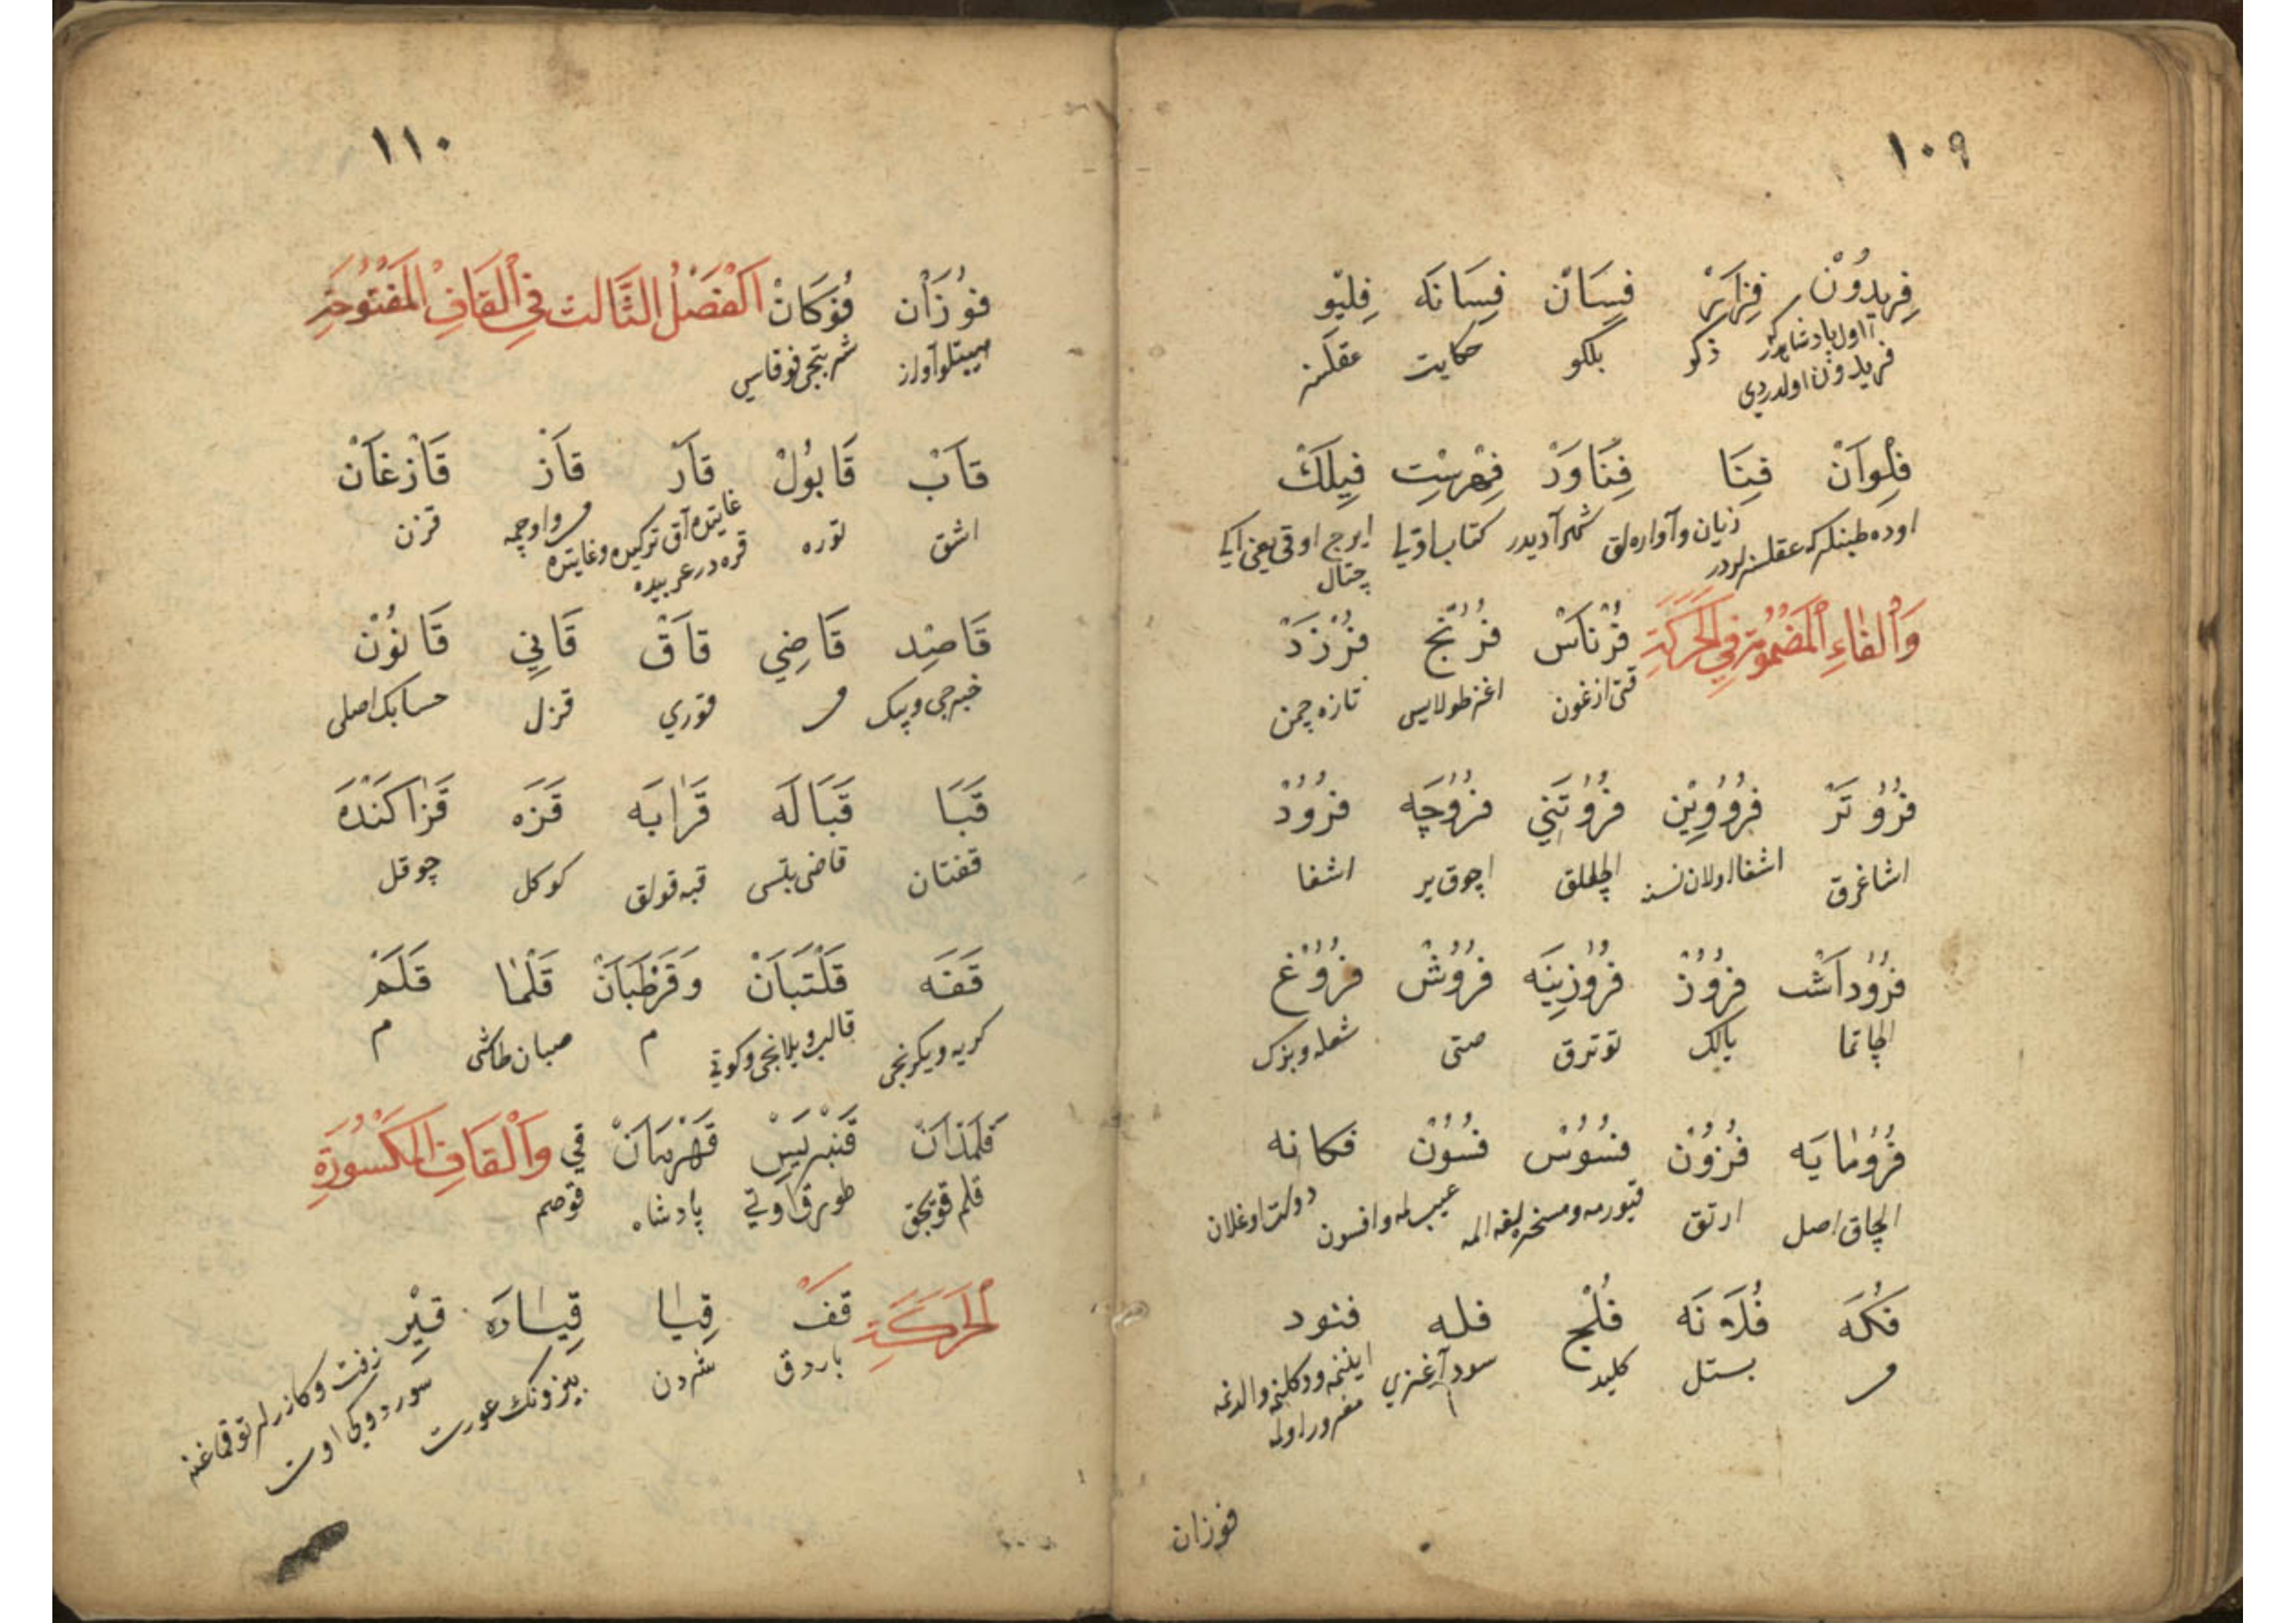 ١٠٩
فِرِيدُوْنْ فِزَايَرْ فِسَانْ فِسَانَه فِلِيْو
اول پادشاهدر كه ذكو بلكو حكايت عقلسز
فريدون اولدردى
فِلِوَانْ فِنَا فِنَاوَرْد فِهْرِسْتِ فِيلَكْ
اوده طبنلر كه عقلسزلردر زيان و آواره لق شهر آديدر كتاب اوڭى ايرج اوقى يعنى ايكى
چتال
وَالْفَاءِ الْمَضْمُومَةِ فِي الْحَرَكَةِ فُرْنَاسْ فُرُنْجْ فُرُزَدْ
قتى ازغون اغز طولايسى تازه چمن
فُرُوتَرْ فُرُووِيْن فُرُوتَنِي فُرُوچَه فُرُودْ
اشاغرق اشغا اولان نسنه الچقلق اچوق ير اشغا
فُرُودَاشْت فُرُوزْ فُرُوزِينَه فُرُوشْ فُرُوغْ
الچاتما يالك توترق صتى شعله و بزك
فُرُومَايَه فُزُونْ فُسُوسْ فُسُونْ فكانه
الچاق اصل ارتق قيورمه و مسخرلغه المه عيب لمه و افسون دولت اوغلان
فُكَه فُلَانَه فُلْج فله فنود
م بستل كليد سود آغزي اينمه و دكلنمه و الدنمه
مغرور اولمه
فوزان
١١٠
فُوْزَان فُوْكَانْ اَلْفَصْلُ الثَّالِث فِي الْقَافِ الْمَفْتُوحَةِ
هيبتلو آواز شربتجى فوقاسي
قَابْ قَابُولْ قَارْ قَازْ قَازْغَانْ
اشق توره غايتده آق تركيده و غايتده م و اوچمه قزن
قره در عربيده
قَاصِد قَاضِي قَاقْ قَانِي قَانُوْنْ
خبرجى و پيك م قوري قزل حسابك اصلى
قَبَا قَبَالَه قَرَابَه قَزَه قَزَاكَنْدَه
قفتان قاضى بتسى قبه قولق كوكل چوقل
قَفَه قَلْتَبَانْ وَقَرْطَبَانْ قَلْمَا قَلَمْ
كريه و يكرنجى قالب و يلانجى و كوتى م صبان طاشى م
قَلَمْدَانْ قَنْبَرِيسْ قَهْرَمَانْ قَي وَالْقَافِ الْمَكْسُورَةِ
قلم قوبجق طورق اوتي پادشاه قوصم
الْحَرَكَةِ قِفْ قِيَا قِيَادَه قِيْر
باردق شردن بيزونك عورت زفت و كازرلر توقماغنه
سوردوكى اوت